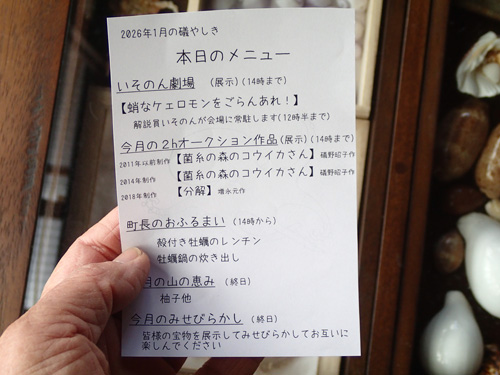 2026年1月の礒やしき
本日のメニュー
いそのん劇場 (展示)(14時まで)
【蛸なケェロモンをごらんあれ!】
解説員いそのんが会場に常駐します(12時半まで)
今月の2hオークション作品(展示)(14時まで)
2011年以前制作【菌糸の森のコウイカさん】礒野昭子作
2014年制作【菌糸の森のコウイカさん】礒野昭子作
2018年制作【分解】増永元作
町長のおふるまい (14時から)
殻付き牡蠣のレンチン
牡蠣鍋の炊き出し
月の山の恵み (終日)
柚子他
今月のみせびらかし (終日)
皆様の宝物を展示してみせびらかしてお互いに
楽しんでください